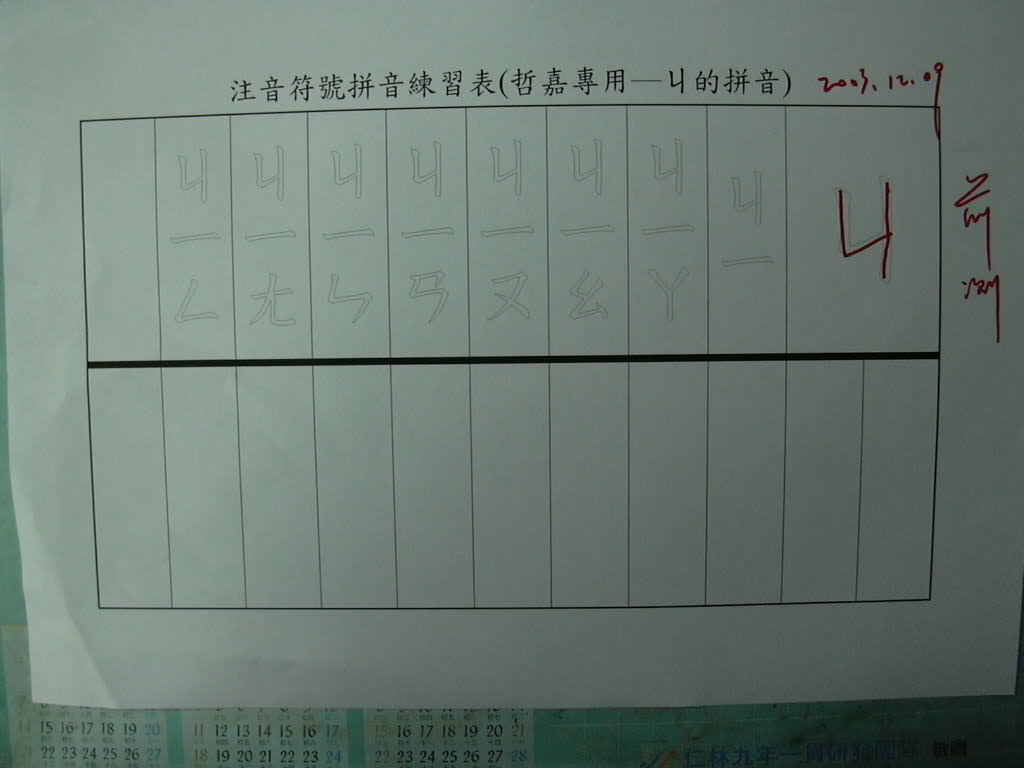 注音符號拼音練習表(哲嘉專用—ㄐ的拼音) 2003.12.09
前測
ㄐ
ㄐㄧ
ㄐㄧㄚ
ㄐㄧㄠ
ㄐㄧㄡ
ㄐㄧㄢ
ㄐㄧㄣ
ㄐㄧㄤ
ㄐㄧㄥ
14 15 16 17 18 19 20
21 22 23 24 25 26 27
11 12 13 14 15 16 17
18 19 20 21 22 23 24
15 16 17 18 19 20 21
22 23 24 25 26 27 28
仁林九年一貫研發團隊 敬贈